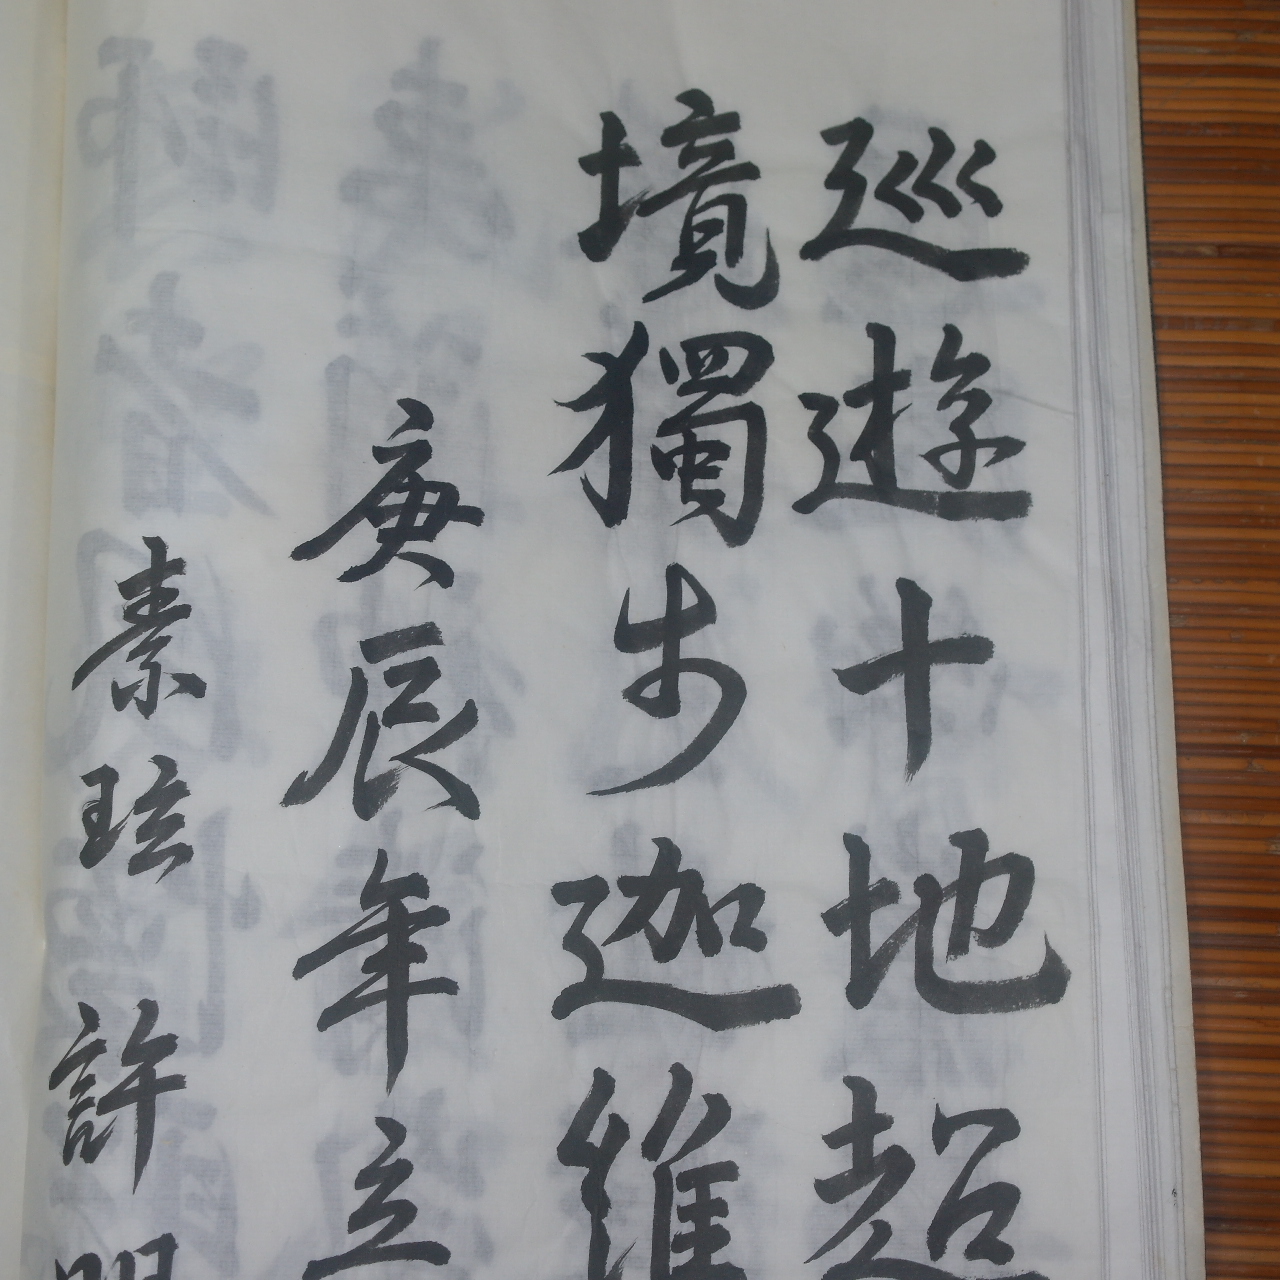 巡遊十地超
境獨步迦維
庚辰年立
素玹許